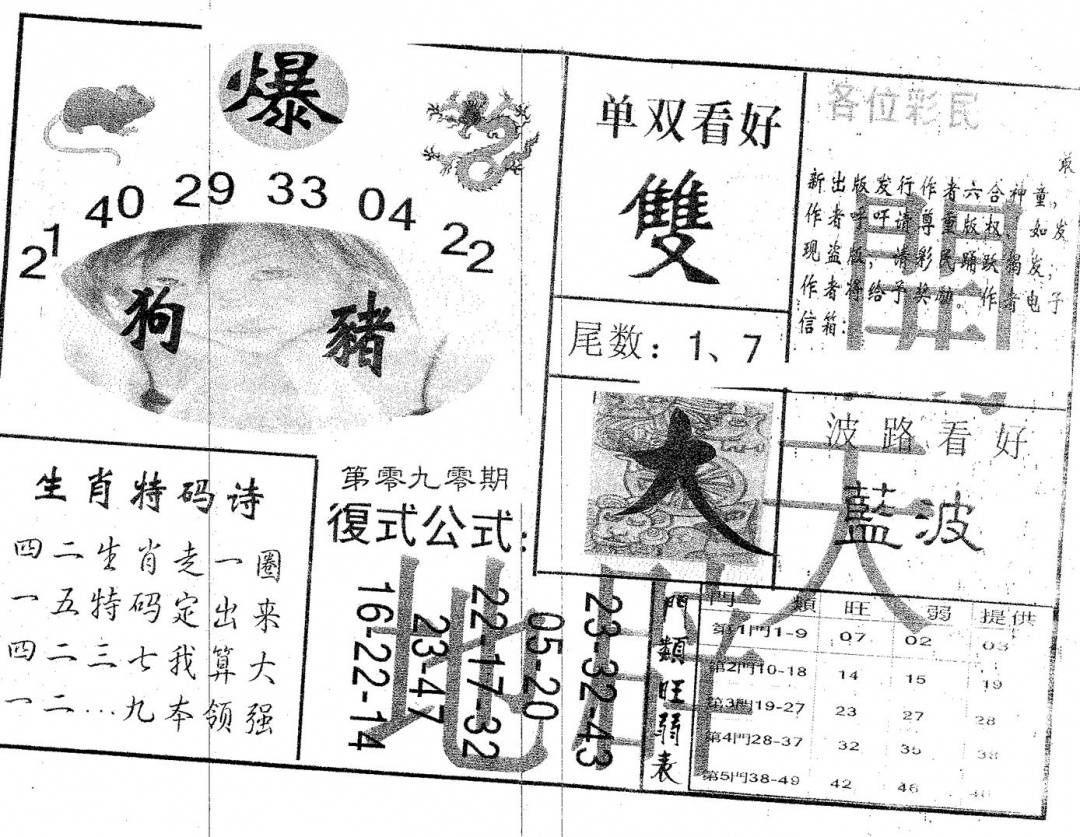 爆
21 40 29 33 04 22
狗 豬
单双看好
雙
尾数：1、7
各位彩民
新出版发行作者六合神童，
作者呼吁请尊重版权．如发
现盗版，请彩民踊跃揭发，
作者将给予奖励。作者电子
信箱：
大
波路看好
藍波
生肖特码诗
四二生肖走一圈
一五特码定出来
四二三七我算大
一二…九本领强
第零九零期
復式公式：
16-22-14
23-47
22-17-32
05-20
23-32-43
門類旺弱表
門 類 旺 弱 提供
第1門1-9 07 02 03
第2門10-18 14 15 19
第3門19-27 23 27 28
第4門28-37 32 35 38
第5門38-49 42 46